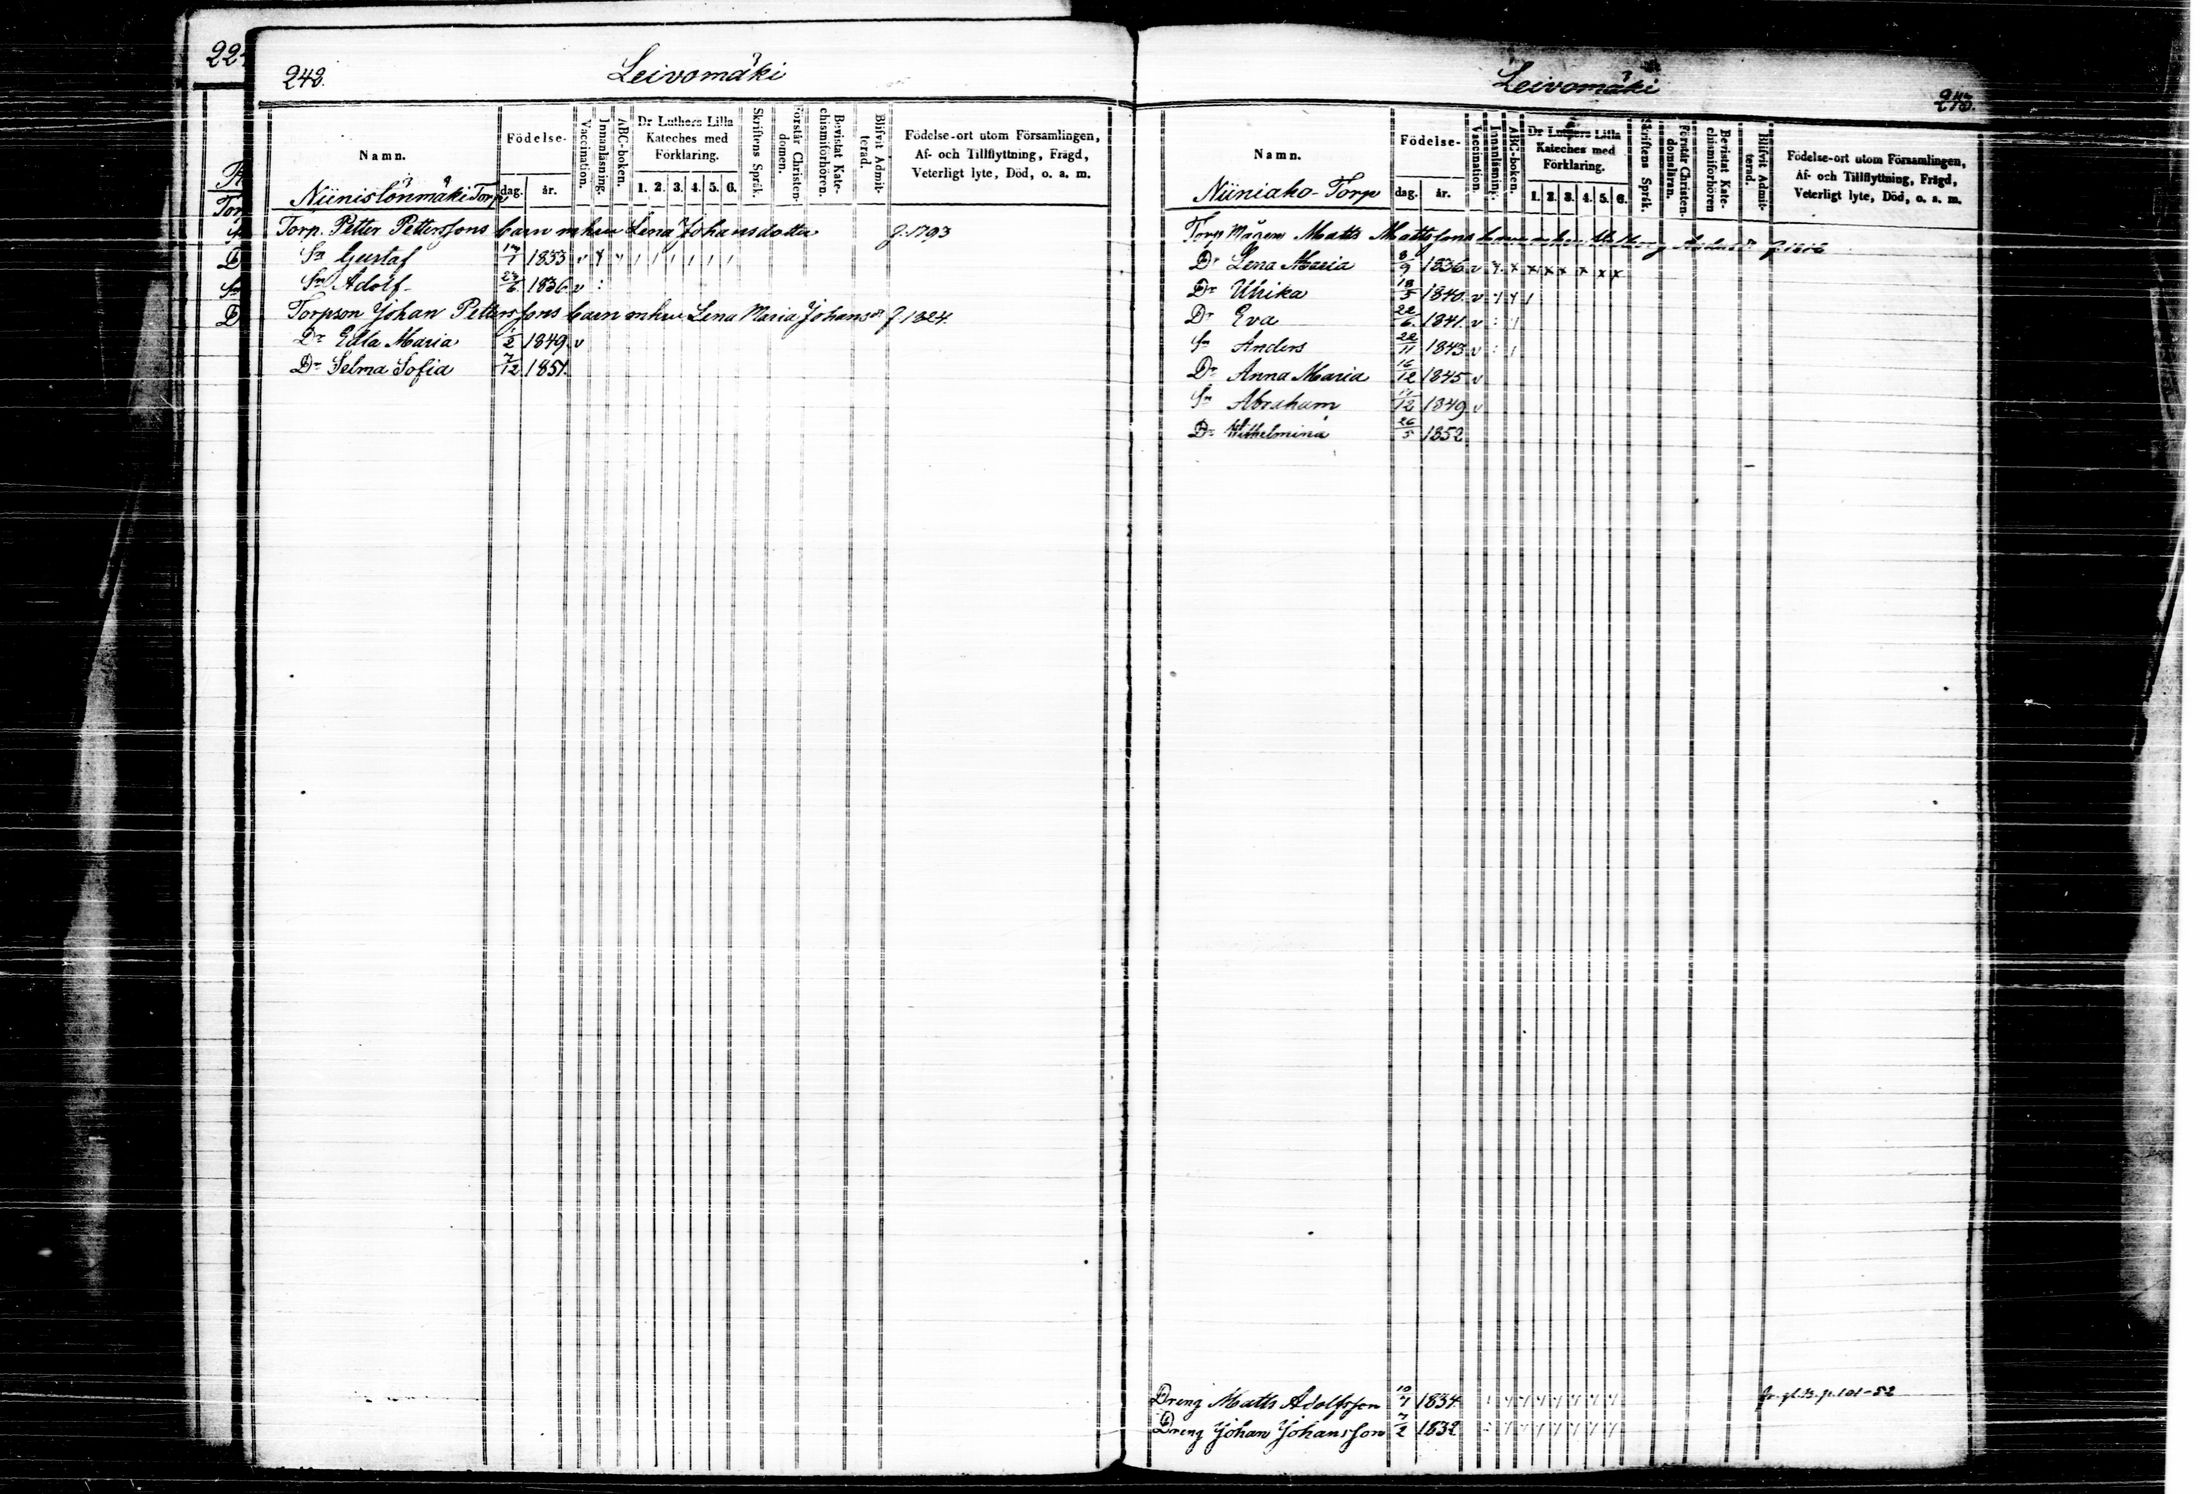 224
242.
Leivomäki
Namn.
Födelse-
dag. år.
Vaccination.
Innanläsning.
ABC-boken.
Dr Luthers Lilla Kateches med Förklaring.
1. 2. 3. 4. 5. 6.
Skriftens Språk.
Förstår Christendomen.
Bevistat Katechismiförhören.
Blifvit Admitterad.
Födelse-ort utom Församlingen, Af- och Tillflyttning, Frägd, Veterligt lyte, Död, o. a. m.
Niinistönmäki Torp
Torp. Petter Petterssons barn m hu Lena Johansdotter f. 1793
Sn Gustaf 17/7 1833 v
Sn Adolf 24/6 1836 v
Torpson Johan Petterssons barn m hu Lena Maria Johansdr f. 1824.
Dr Edla Maria 1/2 1849 v
Dr Selma Sofia 7/12 1851.
Leivomäki
243.
Namn.
Födelse-
dag. år.
Vaccination.
Innanläsning.
ABC-boken.
Dr Luthers Lilla Kateches med Förklaring.
1. 2. 3. 4. 5. 6.
Skriftens Språk.
Förstår Christendomsläran.
Bevistat Katechismiförhören
Blifvit Admitterad.
Födelse-ort utom Församlingen, Af- och Tillflyttning, Frägd, Veterligt lyte, Död, o. a. m.
Niiniaho Torp
Torp Mågen Matts Mattssons barn f. 1816
Dr Lena Maria 8/9 1836 v x x x x x x x
Dr Ulrika 18/5 1840 v
Dr Eva 22/6 1841 v
Sn Anders 22/11 1843 v
Dr Anna Maria 16/12 1845 v
Sn Abraham 17/12 1849 v
Dr Wilhelmina 26/5 1852
Dreng Matts Adolfsson 10/7 1834 fr. gl. B. p. 101-52
Dreng Johan Johansson 7/2 1832